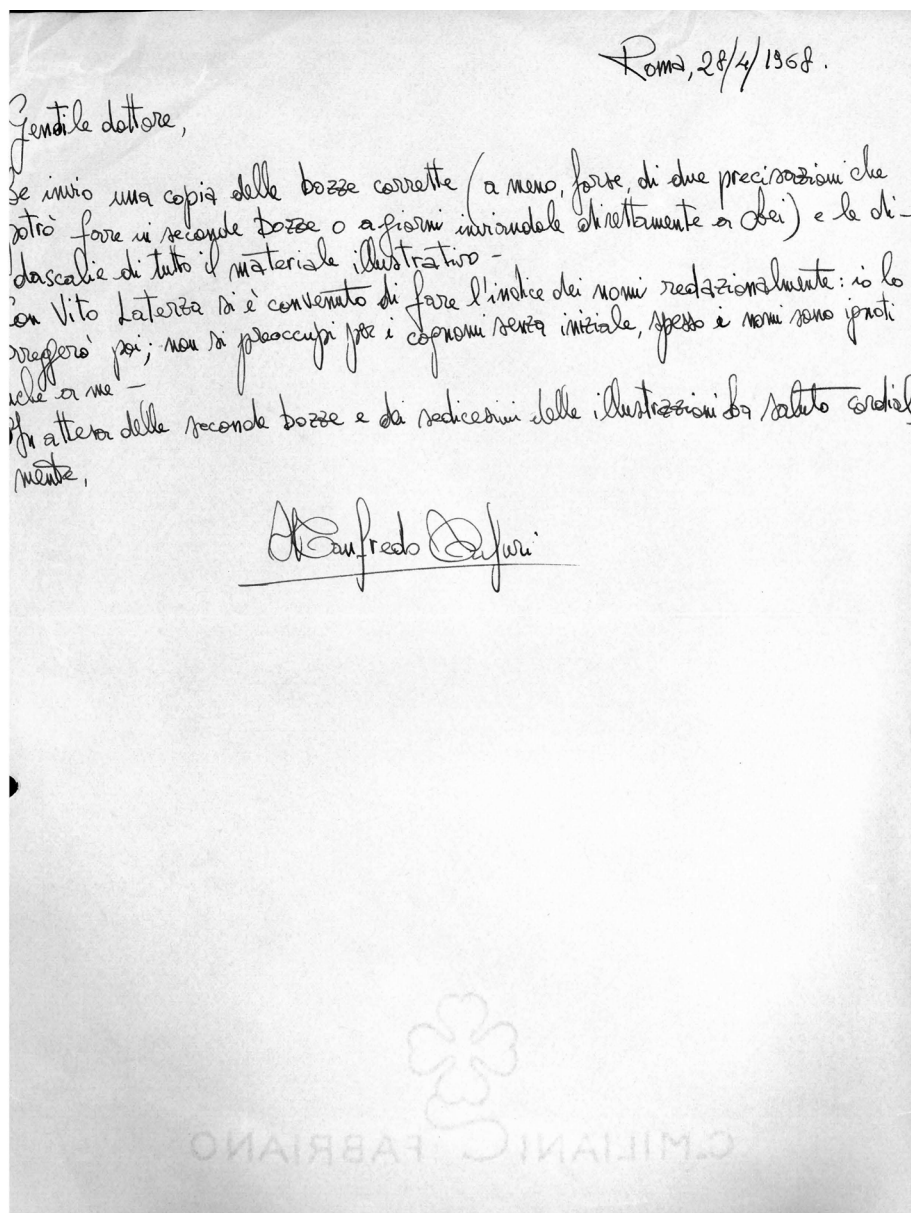 Roma, 28/4/1968.
Gentile dottore,
Le invio una copia delle bozze corrette (a meno, forse, di due precisazioni che
potrò fare in seconde bozze o a giorni inviandole direttamente a Lei) e le di-
dascalie di tutto il materiale illustrativo –
Con Vito Laterza si è convenuto di fare l'indice dei nomi redazionalmente: io lo
correggerò poi; non si preoccupi per i cognomi senza iniziale, spesso i nomi sono ignoti
anche a me –
In attesa delle seconde bozze e dei sedicesimi delle illustrazioni La saluto cordial-
mente,
Manfredo Tafuri
C.MILIANI FABRIANO